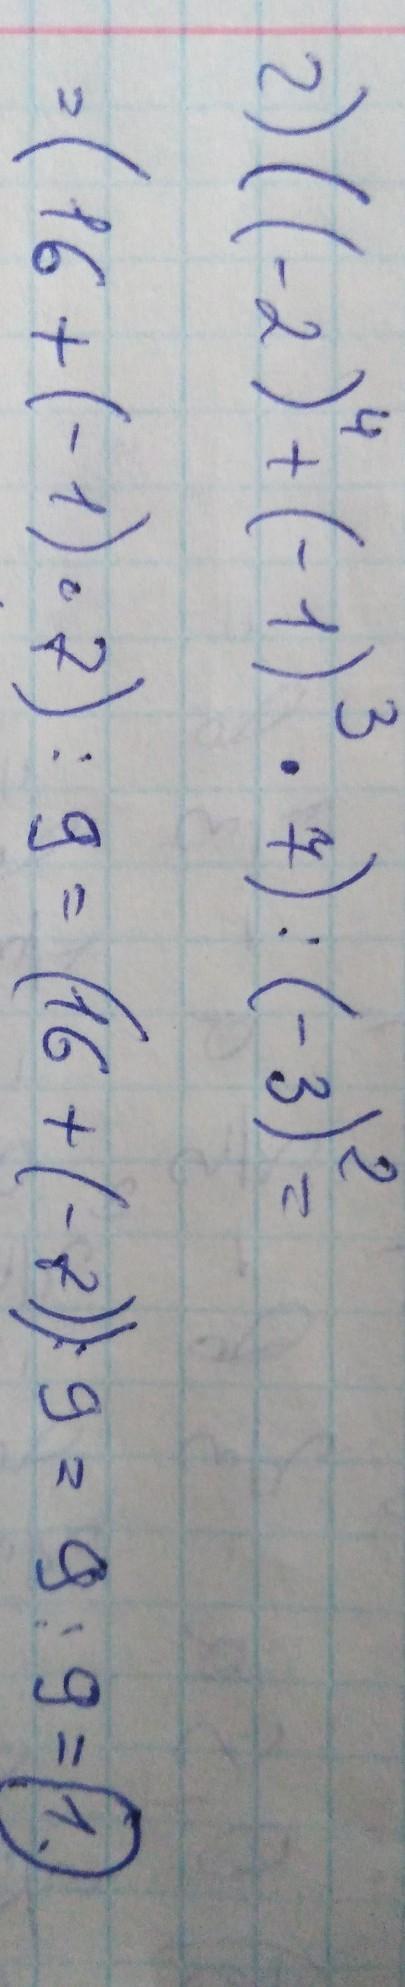 2) ((-2)⁴ + (-1)³ · 7) : (-3)² =
= (16 + (-1) · 7) : 9 = (16 + (-7)) : 9 = 9 : 9 = 1.